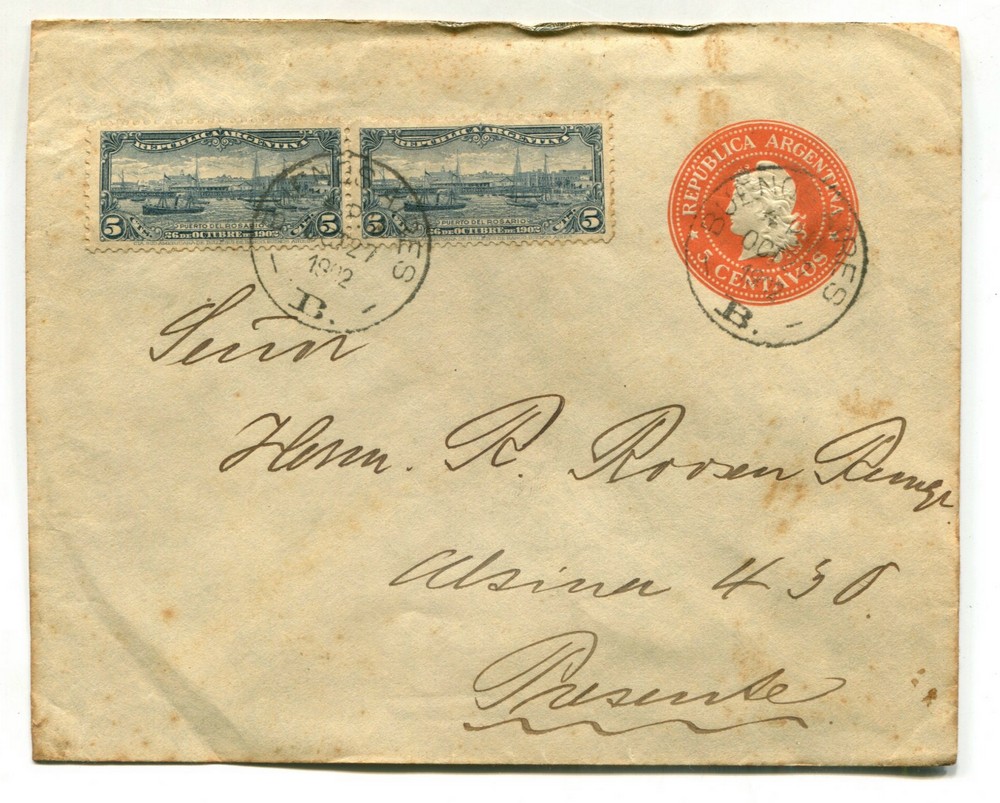 REPUBLICA ARGENTINA
PUERTO DEL ROSARIO
5 26 DE OCTUBRE DE 1902 5
REPUBLICA ARGENTINA
PUERTO DEL ROSARIO
5 26 DE OCTUBRE DE 1902 5
BUENOS AIRES
27
1902
B.
REPÚBLICA ARGENTINA
5 CENTAVOS
BUENOS AIRES
OC
B.
Señor
Herm. R. Roosen
Alsina 430
Presente